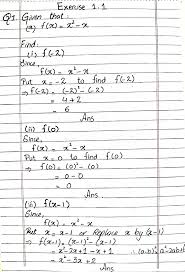 Exercise 1.1
Q1. Given that:
(a) f(x) = x² - x
Find:
(i) f(-2)
Since,
f(x) = x² - x
Put x = -2 to find f(-2)
⇒ f(-2) = (-2)² - (-2)
= 4 + 2
= 6
Ans
(ii) f(0)
Since,
f(x) = x² - x
Put x = 0 to find f(0)
⇒ f(0) = (0)² - (0)
= 0 - 0
= 0
Ans
(iii) f(x-1)
Since,
f(x) = x² - x
Put x = x-1 or Replace x by (x-1)
⇒ f(x-1) = (x-1)² - (x-1)
= x² - 2x + 1 - x + 1 ∴ (a-b)² = a² - 2ab + b²
= x² - 3x + 2
Ans